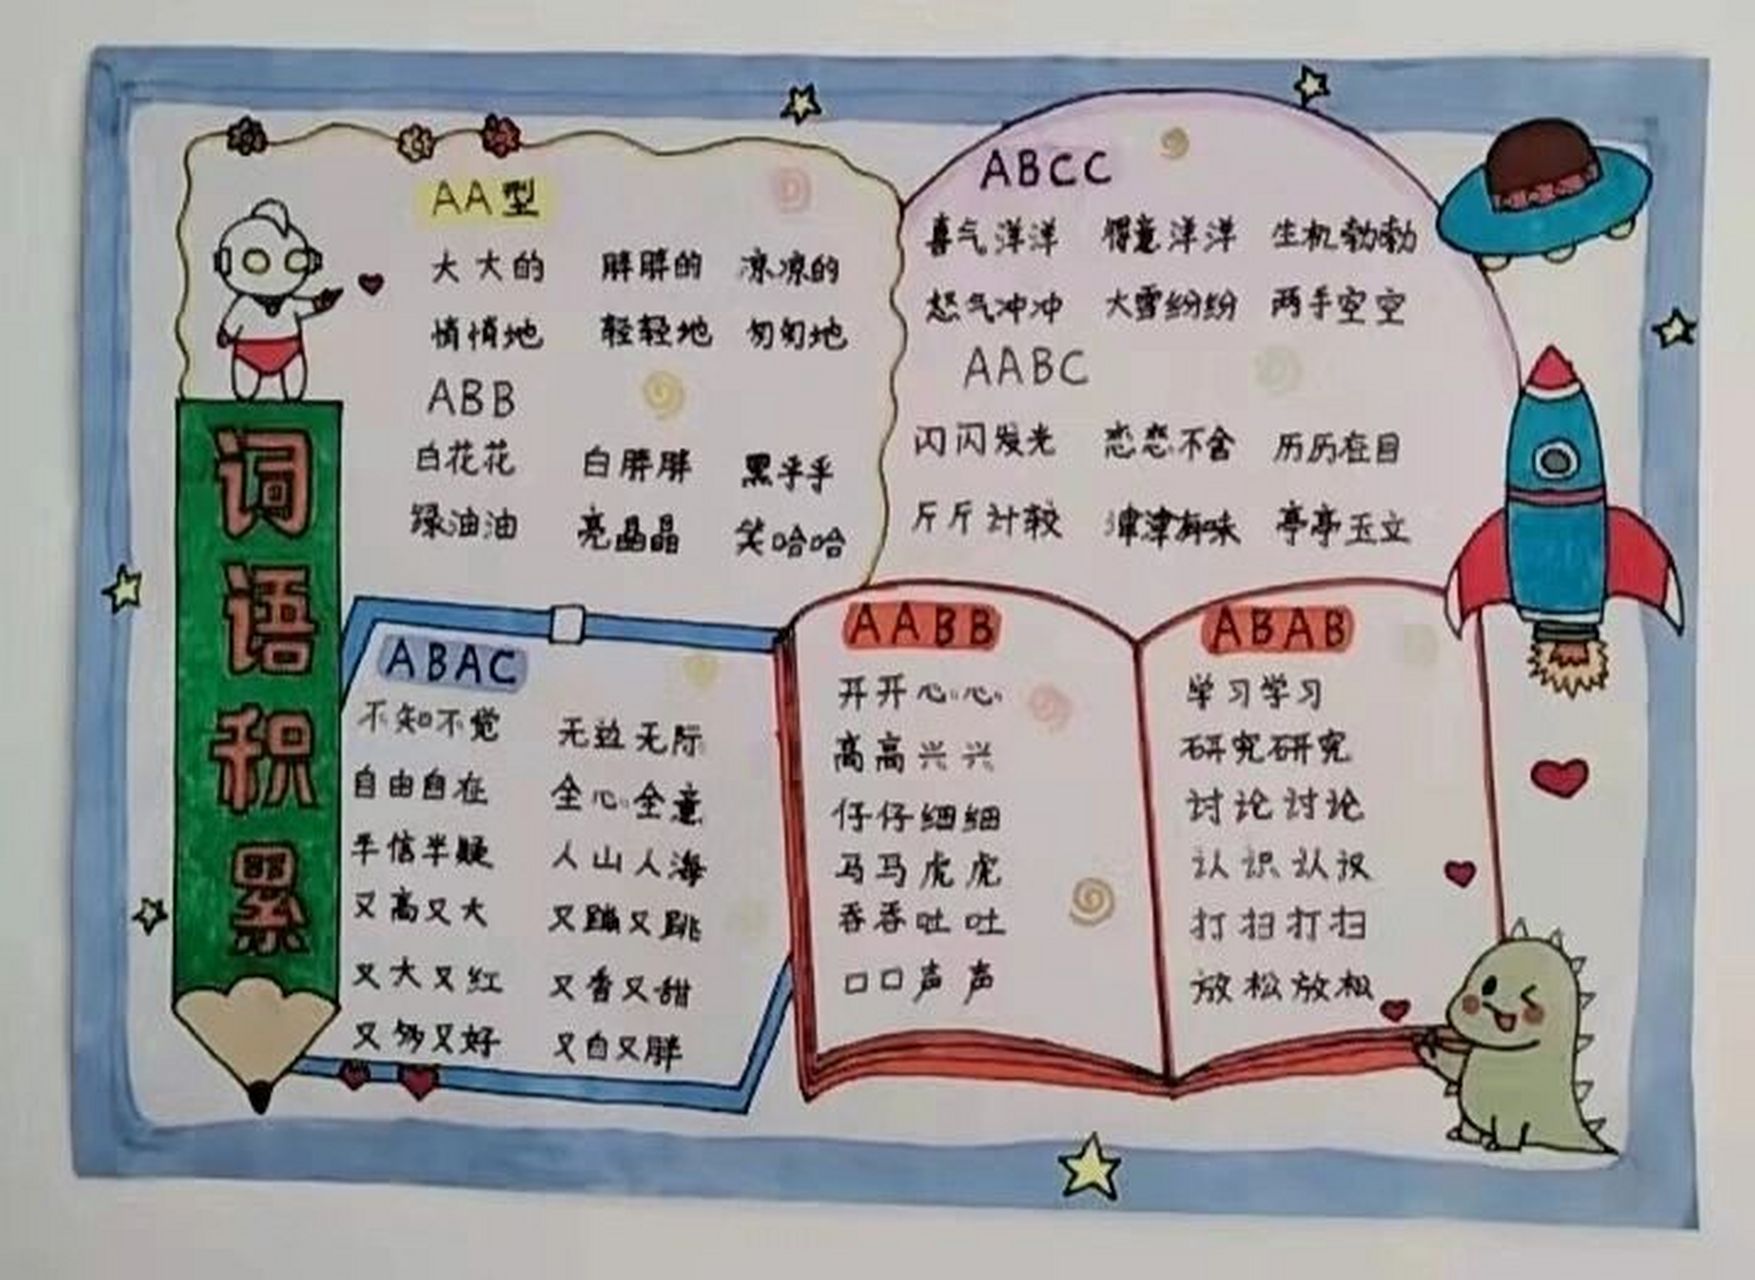 词语积累
AA型
大大的 胖胖的 凉凉的
悄悄地 轻轻地 匆匆地
ABB
白花花 白胖胖 黑乎乎
绿油油 亮晶晶 笑哈哈
ABCC
喜气洋洋 得意洋洋 生机勃勃
怒气冲冲 大雪纷纷 两手空空
AABC
闪闪发光 恋恋不舍 历历在目
斤斤计较 津津有味 亭亭玉立
ABAC
不知不觉 无边无际
自由自在 全心全意
半信半疑 人山人海
又高又大 又蹦又跳
又大又红 又香又甜
又多又好 又白又胖
AABB
开开心心
高高兴兴
仔仔细细
马马虎虎
吞吞吐吐
口口声声
ABAB
学习学习
研究研究
讨论讨论
认识认识
打扫打扫
放松放松